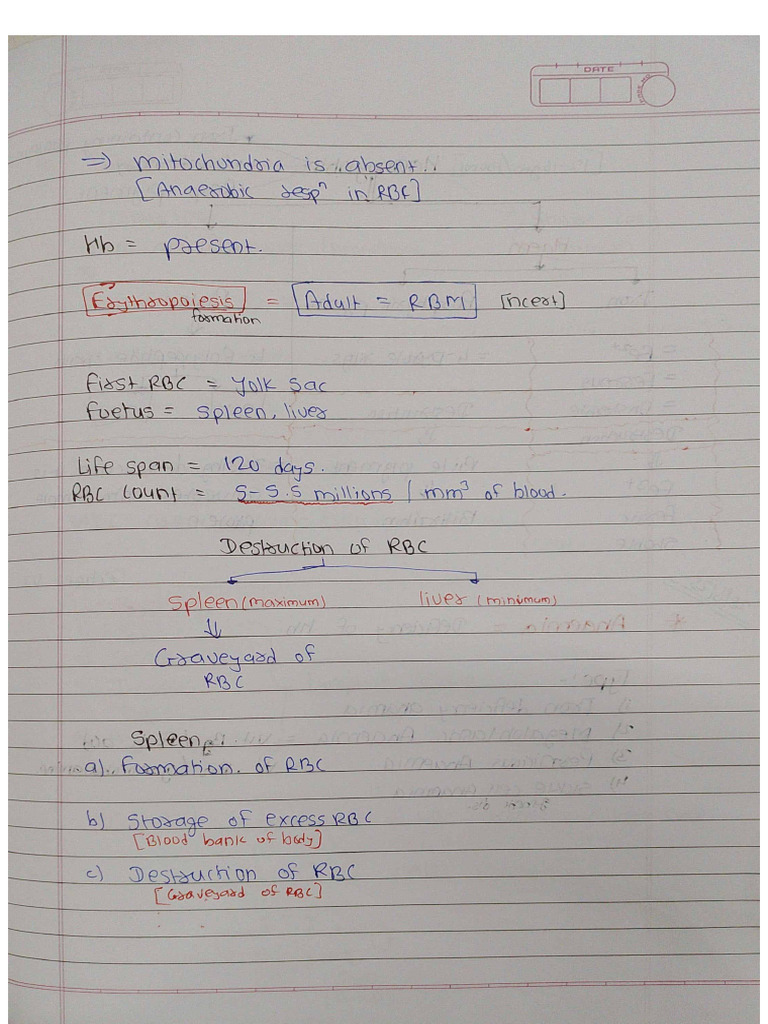 DATE
=> mitochundria is absent..
[Anaerobic respⁿ in RBC]
Hb = present.
Erythropoiesis = Adult = RBM [ncert]
formation
first RBC = yolk sac
foetus = spleen, liver
Life span = 120 days.
RBC count = 5-5.5 millions / mm³ of blood.
Destruction of RBC
Spleen (maximum) liver (minimum)
Graveyard of
RBC
Spleen
a) Formation of RBC
b) Storage of excess RBC
[Blood bank of body]
c) Destruction of RBC
[Graveyard of RBC]